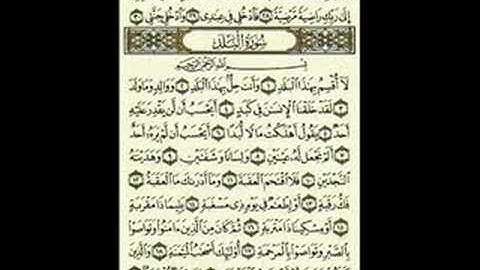 إِلَىٰ رَبِّكِ رَاضِيَةً مَّرْضِيَّةً ٢٨ فَٱدْخُلِى فِى عِبَٰدِى ٢٩ وَٱدْخُلِى جَنَّتِى ٣٠
سُورَةُ ٱلْبَلَدِ
بِسْمِ ٱللَّهِ ٱلرَّحْمَٰنِ ٱلرَّحِيمِ
لَآ أُقْسِمُ بِهَٰذَا ٱلْبَلَدِ ١ وَأَنتَ حِلٌّۢ بِهَٰذَا ٱلْبَلَدِ ٢ وَوَالِدٍ وَمَا وَلَدَ
٣ لَقَدْ خَلَقْنَا ٱلْإِنسَٰنَ فِى كَبَدٍ ٤ أَيَحْسَبُ أَن لَّن يَقْدِرَ عَلَيْهِ
أَحَدٌ ٥ يَقُولُ أَهْلَكْتُ مَالًا لُّبَدًا ٦ أَيَحْسَبُ أَن لَّمْ يَرَهُۥٓ أَحَدٌ
٧ أَلَمْ نَجْعَل لَّهُۥ عَيْنَيْنِ ٨ وَلِسَانًا وَشَفَتَيْنِ ٩ وَهَدَيْنَٰهُ
ٱلنَّجْدَيْنِ ١٠ فَلَا ٱقْتَحَمَ ٱلْعَقَبَةَ ١١ وَمَآ أَدْرَىٰكَ مَا ٱلْعَقَبَةُ ١٢
فَكُّ رَقَبَةٍ ١٣ أَوْ إِطْعَٰمٌ فِى يَوْمٍ ذِى مَسْغَبَةٍ ١٤ يَتِيمًا ذَا مَقْرَبَةٍ
١٥ أَوْ مِسْكِينًا ذَا مَتْرَبَةٍ ١٦ ثُمَّ كَانَ مِنَ ٱلَّذِينَ ءَامَنُوا۟ وَتَوَاصَوْا۟
بِٱلصَّبْرِ وَتَوَاصَوْا۟ بِٱلْمَرْحَمَةِ ١٧ أُو۟لَٰٓئِكَ أَصْحَٰبُ ٱلْمَيْمَنَةِ ١٨ وَٱلَّذِينَ